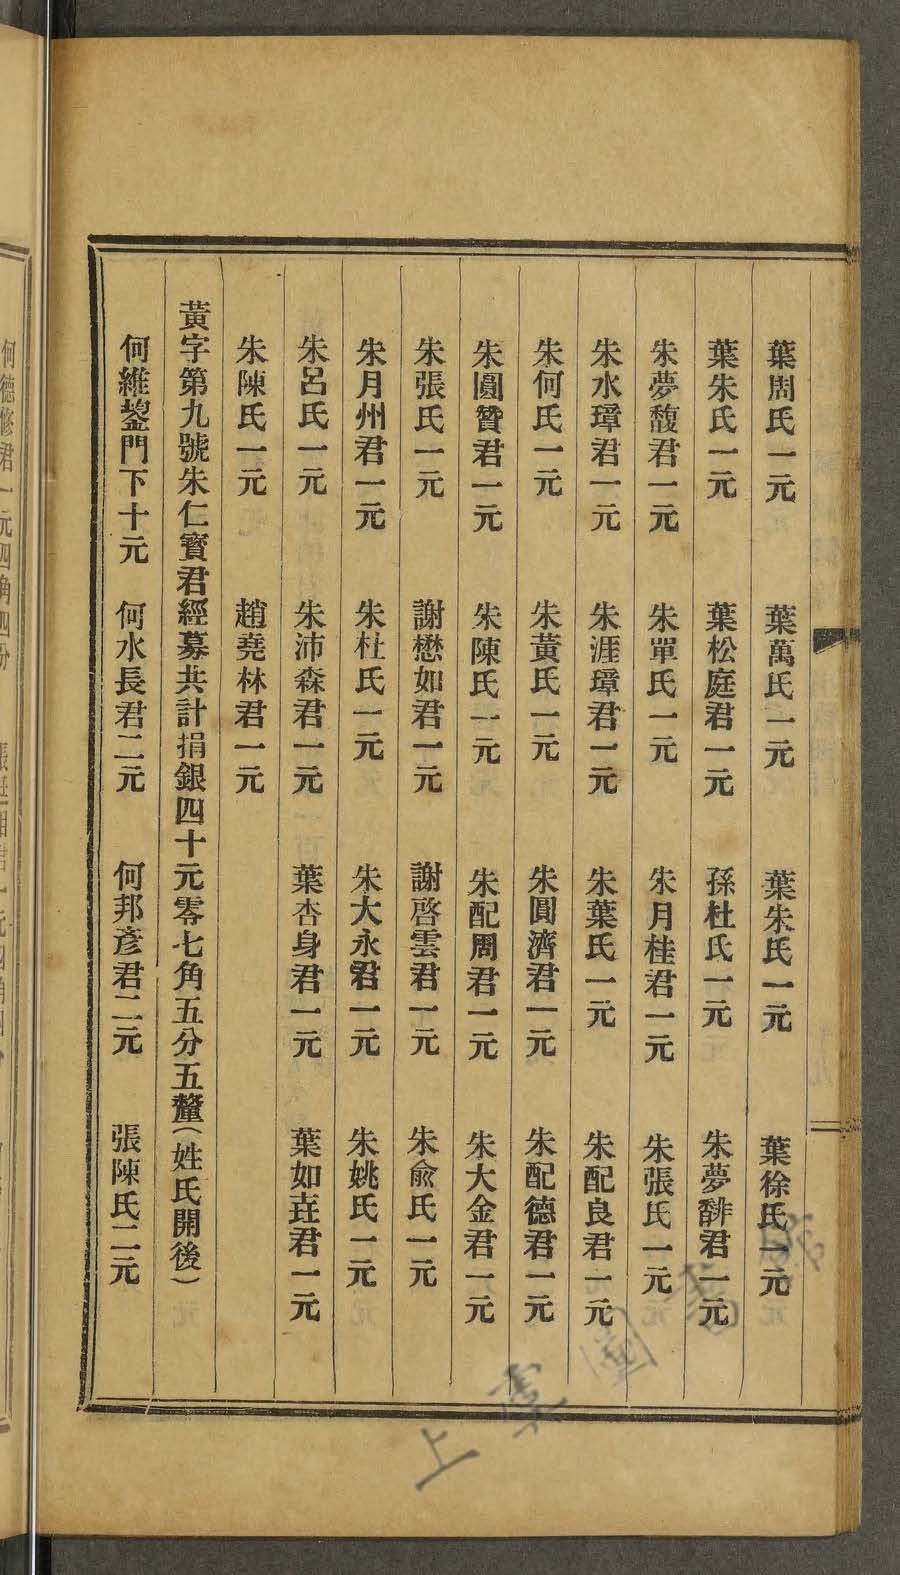 葉周氏一元 葉萬氏一元 葉朱氏一元 葉徐氏一元
葉朱氏一元 葉松庭君一元 孫杜氏一元 朱夢馡君一元
朱夢馥君一元 朱單氏一元 朱月桂君一元 朱張氏一元
朱水璋君一元 朱涯璋君一元 朱葉氏一元 朱配良君一元
朱何氏一元 朱黃氏一元 朱圓濟君一元 朱配德君一元
朱圓贊君一元 朱陳氏一元 朱配周君一元 朱大金君一元
朱張氏一元 謝懋如君一元 謝啓雲君一元 朱俞氏一元
朱月州君一元 朱杜氏一元 朱大永君一元 朱姚氏一元
朱呂氏一元 朱沛森君一元 葉杏身君一元 葉如垚君一元
朱陳氏一元 趙堯林君一元
黃字第九號朱仁寳君經募共計捐銀四十元零七角五分五釐(姓氏開後)
何維鋆門下十元 何水長君二元 何邦彥君二元 張陳氏二元
何德修君一元四角四分
上虞圖書